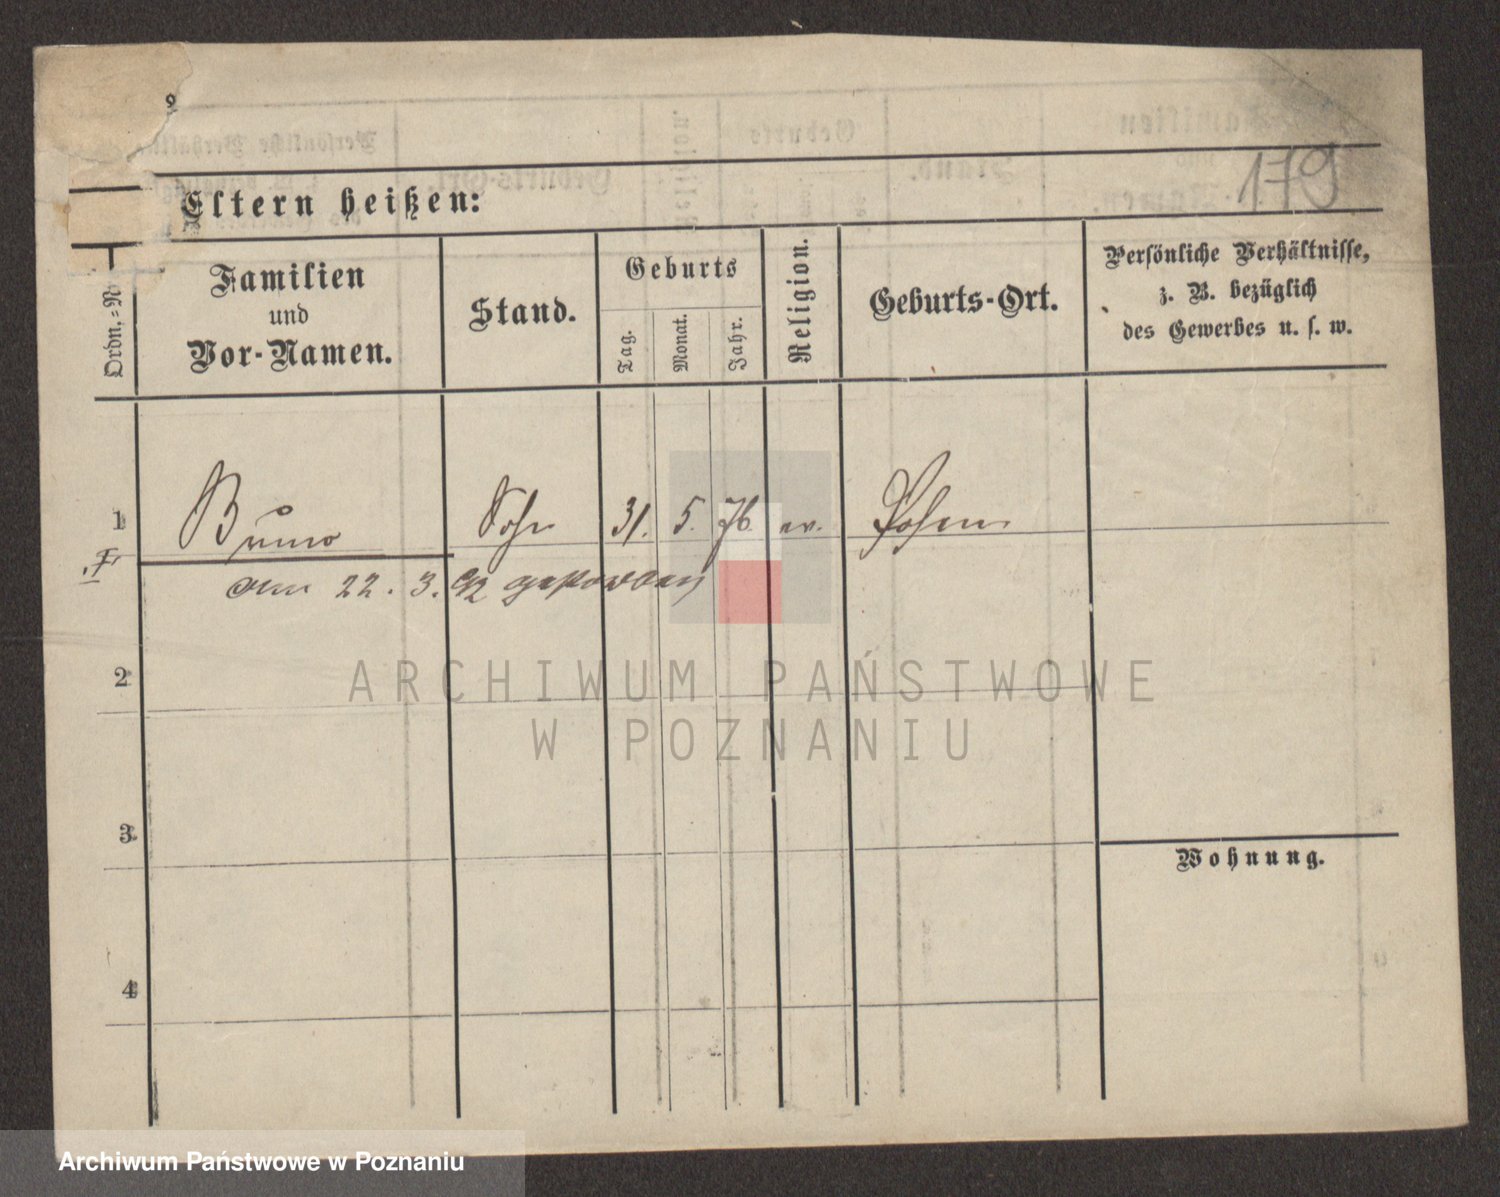 179
Eltern heißen:
Ordn.-N
Familien
und
Vor-Namen.
Stand.
Geburts
Tag.
Monat.
Jahr.
Religion.
Geburts-Ort.
Persönliche Verhältnisse,
z. B. bezüglich
des Gewerbes u. s. w.
1 Bruno Sohn 31. 5. 76. ev. Posen
am 22. 3. 92 gestorben
2
ARCHIWUM PAŃSTWOWE
W POZNANIU
3
Wohnung.
4
Archiwum Państwowe w Poznaniu